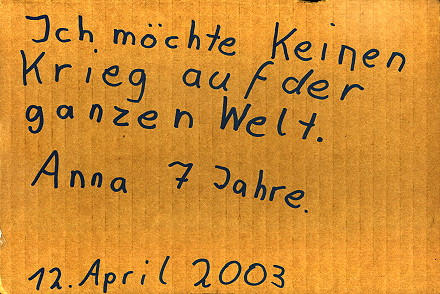 Ich möchte Keinen
Krieg auf der
ganzen Welt.
Anna 7 Jahre.
12. April 2003